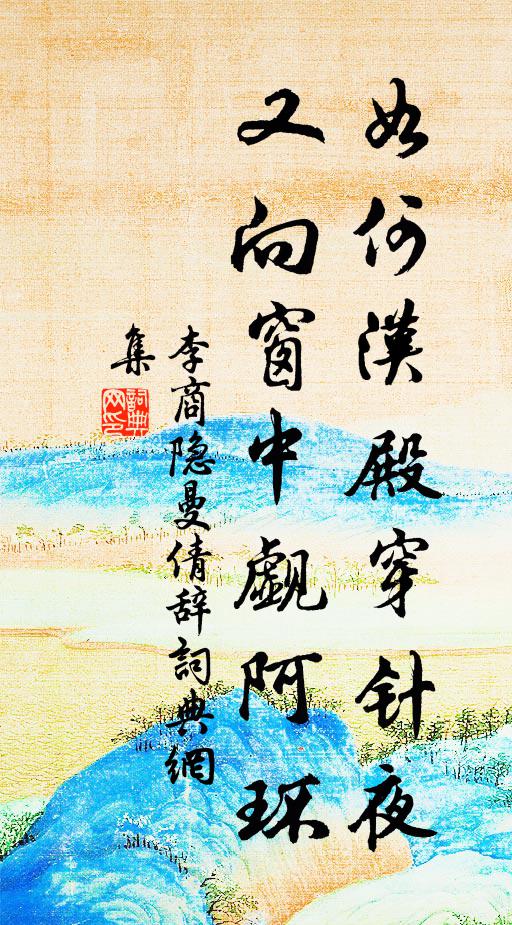 如何漢殿穿针夜
又向窗中觑阿环
李商隐曼倩辞詞典網
集
詞典
网印